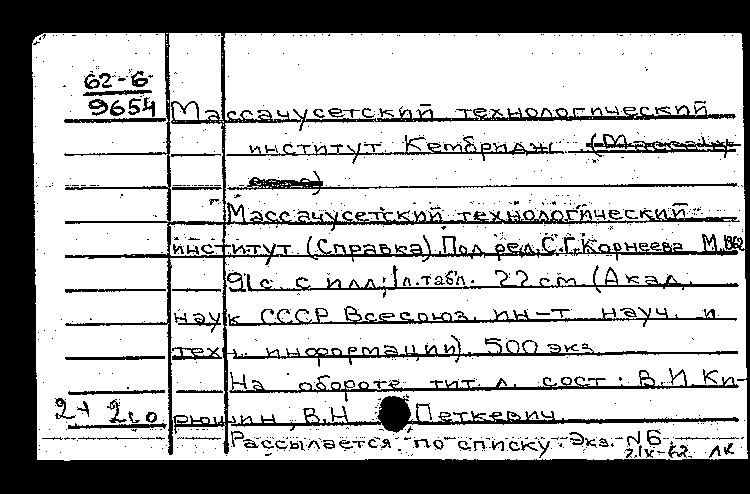 62-6
9654 Массачусетский технологический
институт Кембридж (Массачу
сетс)
Массачусетский технологический
институт (Справка). Под ред. С.Г. Корнеева М. 1962
91 с. с илл; 1 л. табл. 22 cm. (Акад.
наук СССР Всесоюз. ин-т науч. и
техн. информации). 500 экз.
На обороте тит. л. сост: В.И. Ки-
рюшин, В.Н. Петкевич.
2+ 2со
Рассылается по списку. Экз. №6
2/IX-62 ЛК